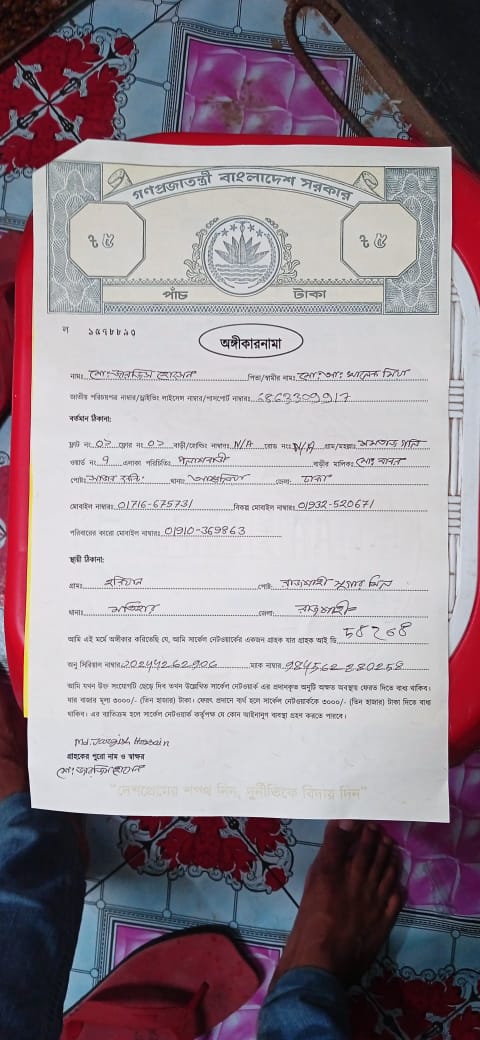 গণপ্রজাতন্ত্রী বাংলাদেশ সরকার
৳ ৫ ৳ ৫
পাঁচ টাকা
ল ১৫৭৮৮৯৩
অঙ্গীকারনামা
নামঃ মোঃ জারজিস হোসেন পিতা/স্বামীর নামঃ মোঃ আঃ খালেক মিঞা
জাতীয় পরিচয়পত্র নাম্বার/ড্রাইভিং লাইসেন্স নাম্বার/পাসপোর্ট নাম্বারঃ 6863309917
বর্তমান ঠিকানা:
ফ্লাট নং 02 ফ্লোর নং 02 বাড়ী/হোল্ডিং নাম্বারঃ N/A রোড নংঃ N/A গ্রাম/মহল্লাঃ
ওয়ার্ড নং 9 এলাকা পরিচিতিঃ পলাশবাড়ী বাড়ীর মালিকঃ মোঃ
পোষ্টঃ থানাঃ আশুলিয়া জেলা: ঢাকা
মোবাইল নাম্বারঃ 01716-675731 বিকল্প মোবাইল নাম্বারঃ 01932-520671
পরিবারের কারো মোবাইল নাম্বারঃ 01910-369863
স্থায়ী ঠিকানা:
গ্রামঃ হরিয়ান পোষ্ট: রাজশাহী সুগার মিল
থানাঃ মতিহার জেলা: রাজশাহী
আমি এই মর্মে অঙ্গীকার করিতেছি যে, আমি সার্কেল নেটওয়ার্কের একজন গ্রাহক যার গ্রাহক আই ডি 58268
অনু সিরিয়াল নাম্বার 20244262906 ম্যাক নাম্বার 984562280258
আমি যখন উক্ত সংযোগটি ছেড়ে দিব তখন উল্লেখিত সার্কেল নেটওয়ার্ক এর প্রদানকৃত অনুটি অক্ষত অবস্থায় ফেরত দিতে বাধ্য থাকিব।
যার বাজার মূল্য ৩০০০/- (তিন হাজার) টাকা। ফেরৎ প্রদানে ব্যর্থ হলে সার্কেল নেটওয়ার্ককে ৩০০০/- (তিন হাজার) টাকা দিতে বাধ্য
থাকিব। এর ব্যতিক্রম হলে সার্কেল নেটওয়ার্ক কর্তৃপক্ষ যে কোন আইনানুগ ব্যবস্থা গ্রহণ করতে পারবে।
Md. Jargish Hossain
গ্রাহকের পুরো নাম ও স্বাক্ষর
মোঃ জারজিস হোসেন
"দেশপ্রেমের শপথ নিন, দুর্নীতিকে বিদায় দিন"